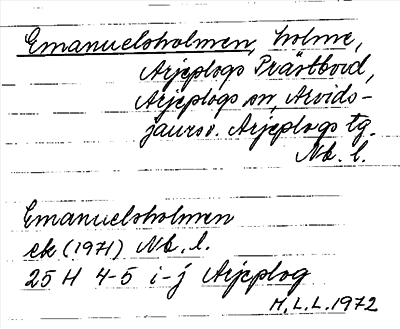 Emanuelsholmen, holme,
Arjeplogs Prästbord,
Arjeplogs sn, Arvids-
jaurs o. Arjeplogs tg.
Nb. l.
Emanuelsholmen
ek (1971) Nb. l.
25 H 4-5 i-j Arjeplog
H.L.L. 1972